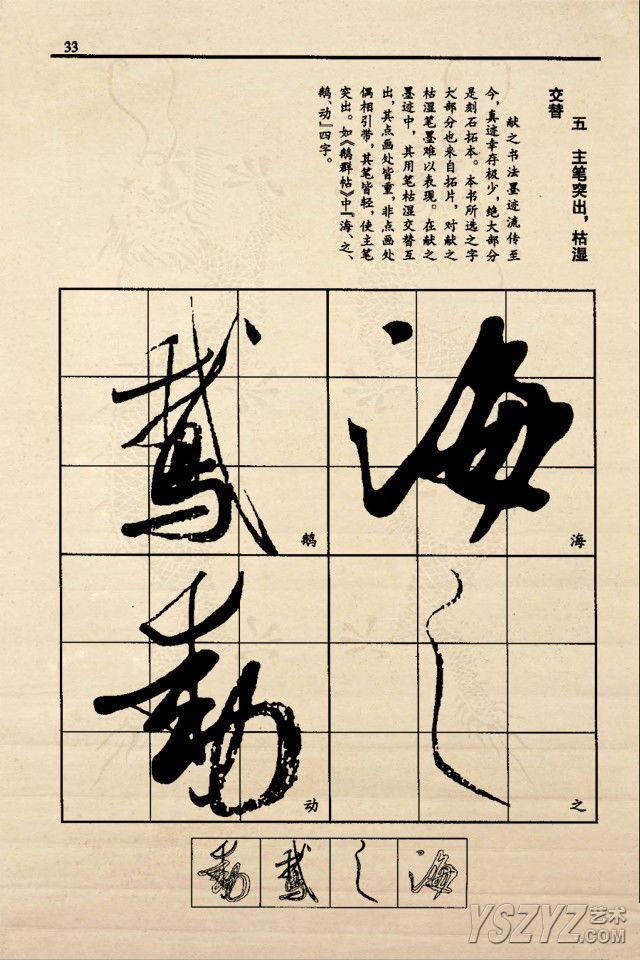 33
五　主笔突出，枯湿
交替
献之书法墨迹流传至
今，真迹幸存极少，绝大部分
是刻石拓本。本书所选之字
大部分也来自拓片，对献之
枯湿笔墨难以表现。在献之
墨迹中，其用笔枯湿交替互
出，其点画处皆重，非点画处
偶相引带，其笔皆轻，使主笔
突出。如《鹅群帖》中『海、之、
鹅、动』四字。
海
海
之
之
鵞
鹅
動
动
海
之
鵞
動
YSZYZ艺术
.COM